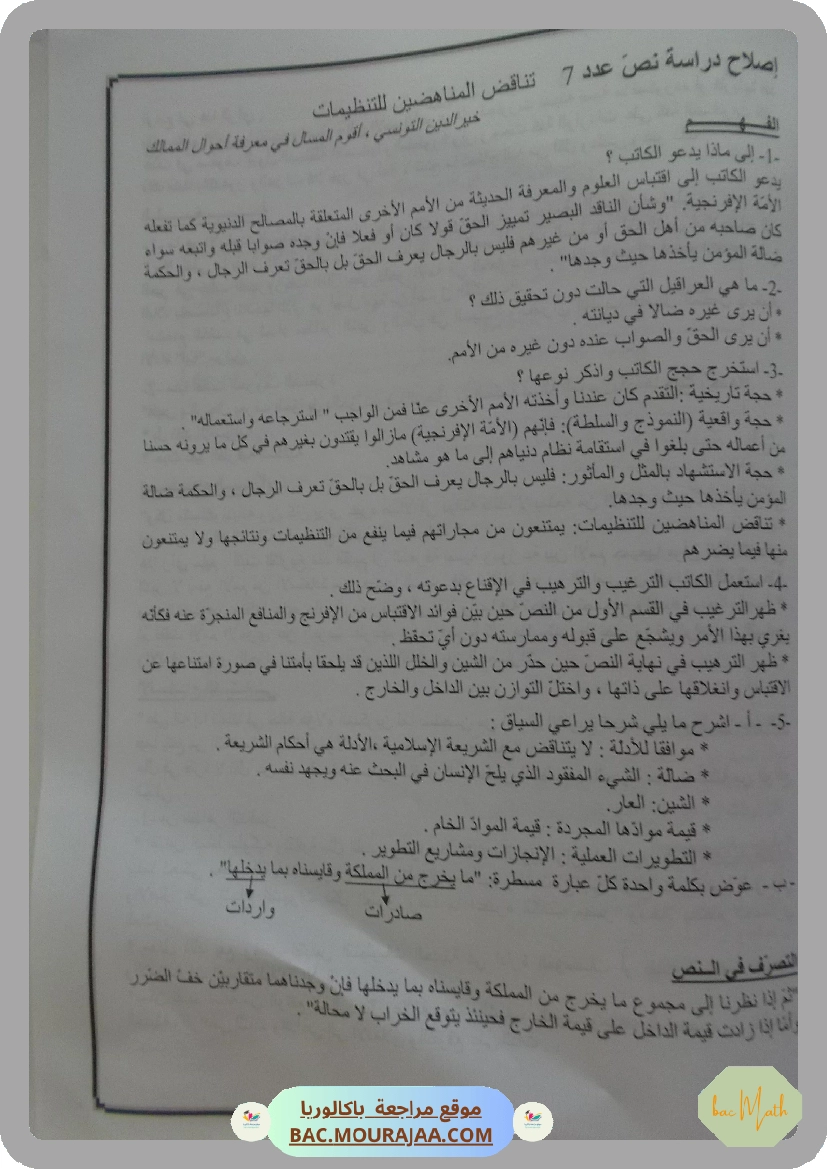 إصلاح دراسة نصّ عدد 7 تناقض المناهضين للتنظيمات
خيرالدين التونسي ، أقوم المسال في معرفة أحوال الممالك
الفـــهـــــم
-1- إلى ماذا يدعو الكاتب ؟
يدعو الكاتب إلى اقتباس العلوم والمعرفة الحديثة من الأمم الأخرى المتعلقة بالمصالح الدنيوية كما تفعله
الأمّة الإفرنجية. "وشأن الناقد البصير تمييز الحقّ قولا كان أو فعلا فإنْ وجده صوابا قبله واتبعه سواء
كان صاحبه من أهل الحق أو من غيرهم فليس بالرجال يعرف الحقّ بل بالحقّ تعرف الرجال ، والحكمة
ضالة المؤمن يأخذها حيث وجدها" .
-2- ما هي العراقيل التي حالت دون تحقيق ذلك ؟
* أن يرى غيره ضالا في ديانته .
* أن يرى الحقّ والصواب عنده دون غيره من الأمم.
-3- استخرج حجج الكاتب واذكر نوعها ؟
* حجة تاريخية :التقدم كان عندنا وأخذته الأمم الأخرى عنّا فمن الواجب " استرجاعه واستعماله" .
* حجة واقعية (النموذج والسلطة): فإنهم (الأمّة الإفرنجية) مازالوا يقتدون بغيرهم في كل ما يرونه حسنا
من أعماله حتى بلغوا في استقامة نظام دنياهم إلى ما هو مشاهد.
* حجة الاستشهاد بالمثل والمأثور: فليس بالرجال يعرف الحقّ بل بالحقّ تعرف الرجال ، والحكمة ضالة
المؤمن يأخذها حيث وجدها.
* تناقض المناهضين للتنظيمات: يمتنعون من مجاراتهم فيما ينفع من التنظيمات ونتائجها ولا يمتنعون
منها فيما يضرهم
-4- استعمل الكاتب الترغيب والترهيب في الإقناع بدعوته ، وضّح ذلك .
* ظهرالترغيب في القسم الأول من النصّ حين بيّن فوائد الاقتباس من الإفرنج والمنافع المنجرّة عنه فكأنه
يغري بهذا الأمر ويشجّع على قبوله وممارسته دون أيّ تحفظ .
* ظهر الترهيب في نهاية النصّ حين حذّر من الشين والخلل اللذين قد يلحقا بأمتنا في صورة امتناعها عن
الاقتباس وانغلاقها على ذاتها ، واختلّ التوازن بين الداخل والخارج .
-5- - أ - اشرح ما يلي شرحا يراعي السياق :
* موافقا للأدلة : لا يتناقض مع الشريعة الإسلامية ،الأدلة هي أحكام الشريعة .
* ضالة : الشيء المفقود الذي يلحّ الإنسان في البحث عنه ويجهد نفسه .
* الشين: العار.
* قيمة موادّها المجردة : قيمة الموادّ الخام .
* التطويرات العملية : الإنجازات ومشاريع التطوير .
- ب - عوّض بكلمة واحدة كلّ عبارة مسطرة: "ما يخرج من المملكة وقايسناه بما يدخلها" .
صادرات واردات
التصرّف في الـنص
"ثمّ إذا نظرنا إلى مجموع ما يخرج من المملكة وقايسناه بما يدخلها فإنْ وجدناهما متقاربيْن خفّ الضّرر
وأمّا إذا زادت قيمة الداخل على قيمة الخارج فحينئذ يتوقع الخراب لا محالة" .
موقع مراجعة باكالوريا
BAC.MOURAJAA.COM
bac Math